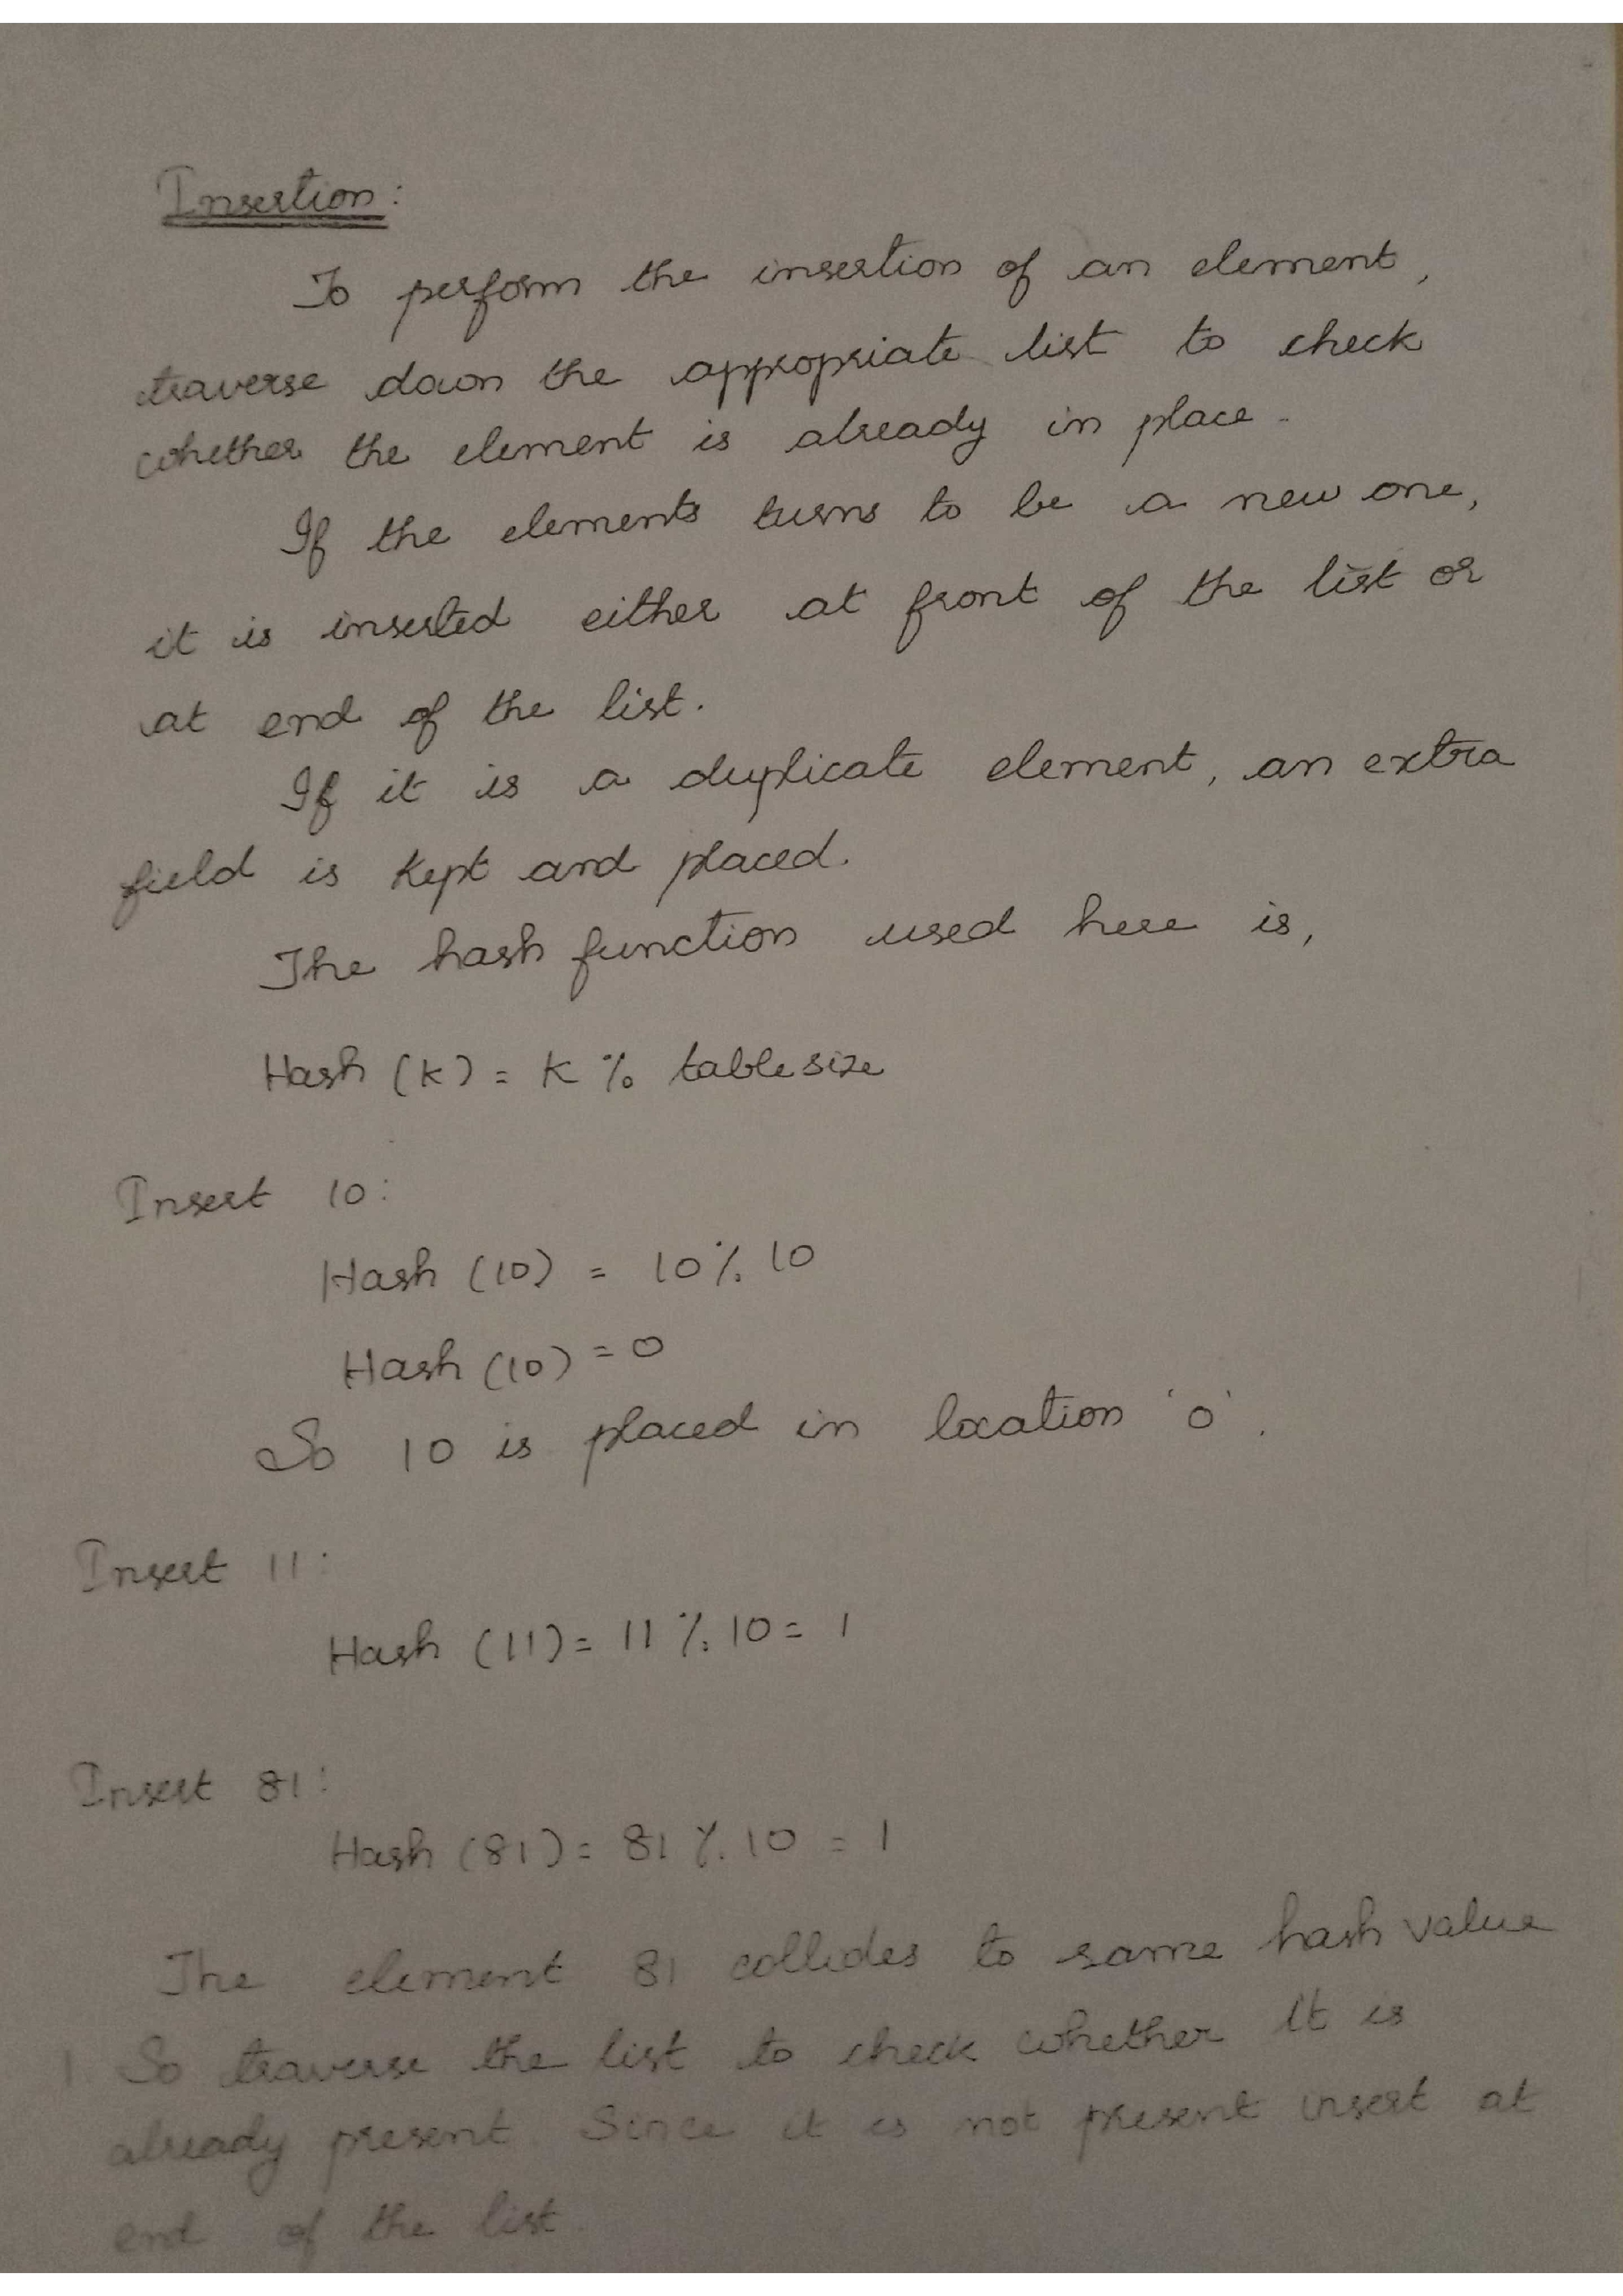 Insertion:
To perform the insertion of an element,
traverse down the appropriate list to check
whether the element is already in place.
If the elements turns to be a new one,
it is inserted either at front of the list or
at end of the list.
If it is a duplicate element, an extra
field is kept and placed.
The hash function used here is,
Hash (K) = K % tablesize
Insert 10:
Hash (10) = 10 % 10
Hash (10) = 0
So 10 is placed in location '0'.
Insert 11:
Hash (11) = 11 % 10 = 1
Insert 81:
Hash (81) = 81 % 10 = 1
The element 81 collides to same hash value
1. So traverse the list to check whether it is
already present. Since it is not present insert at
end of the list